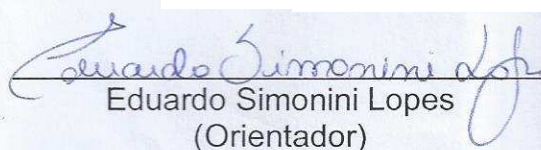 Eduardo Simonini Lopes
Eduardo Simonini Lopes
(Orientador)